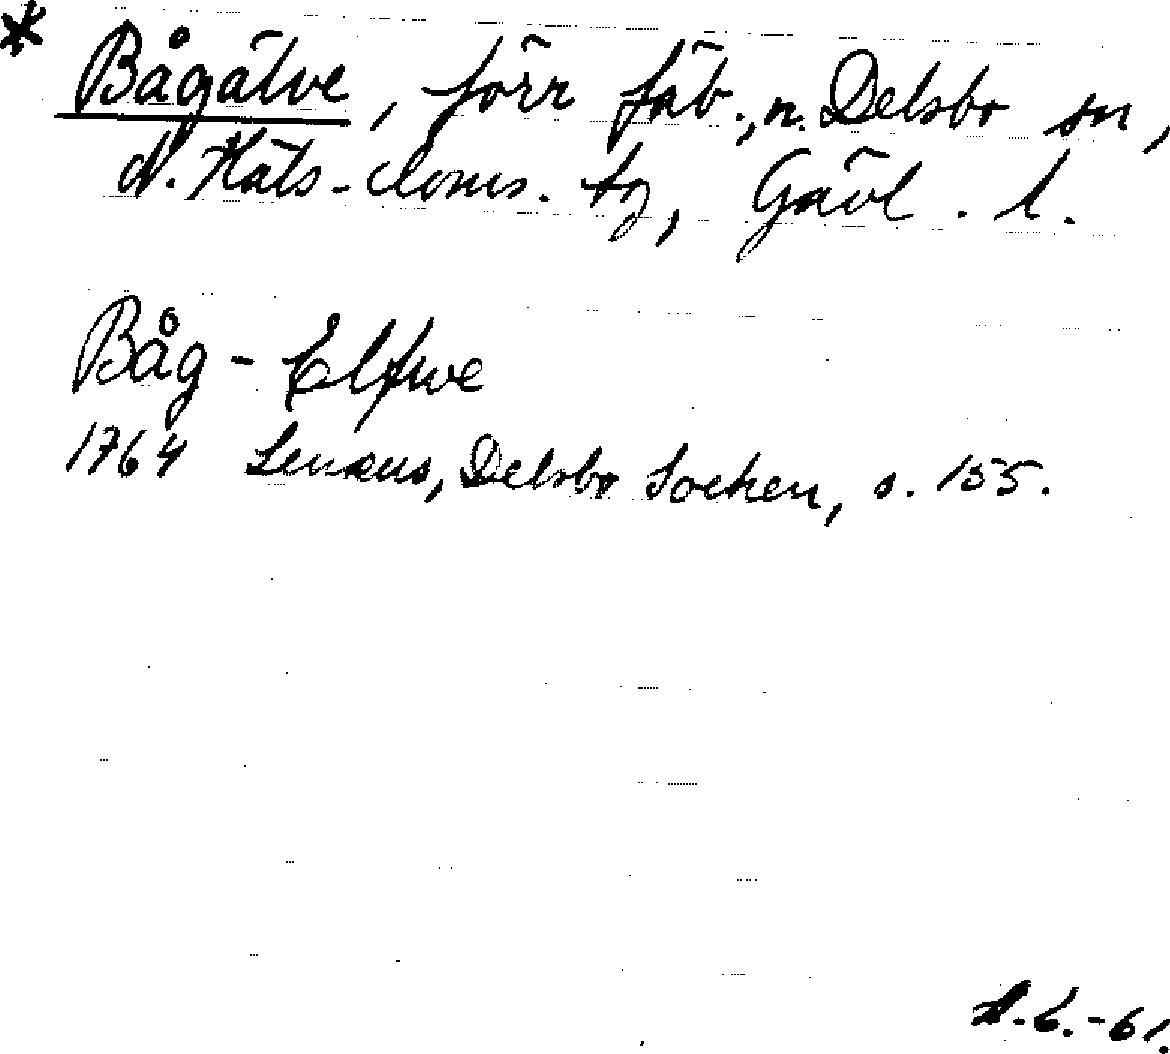 * Bågälve, förr fäb., n. Delsbo sn,
N. Häls. doms. tg, Gävl. l.
Båg-Elfwe
1764 Lenæus, Delsbo Socken, s. 155.